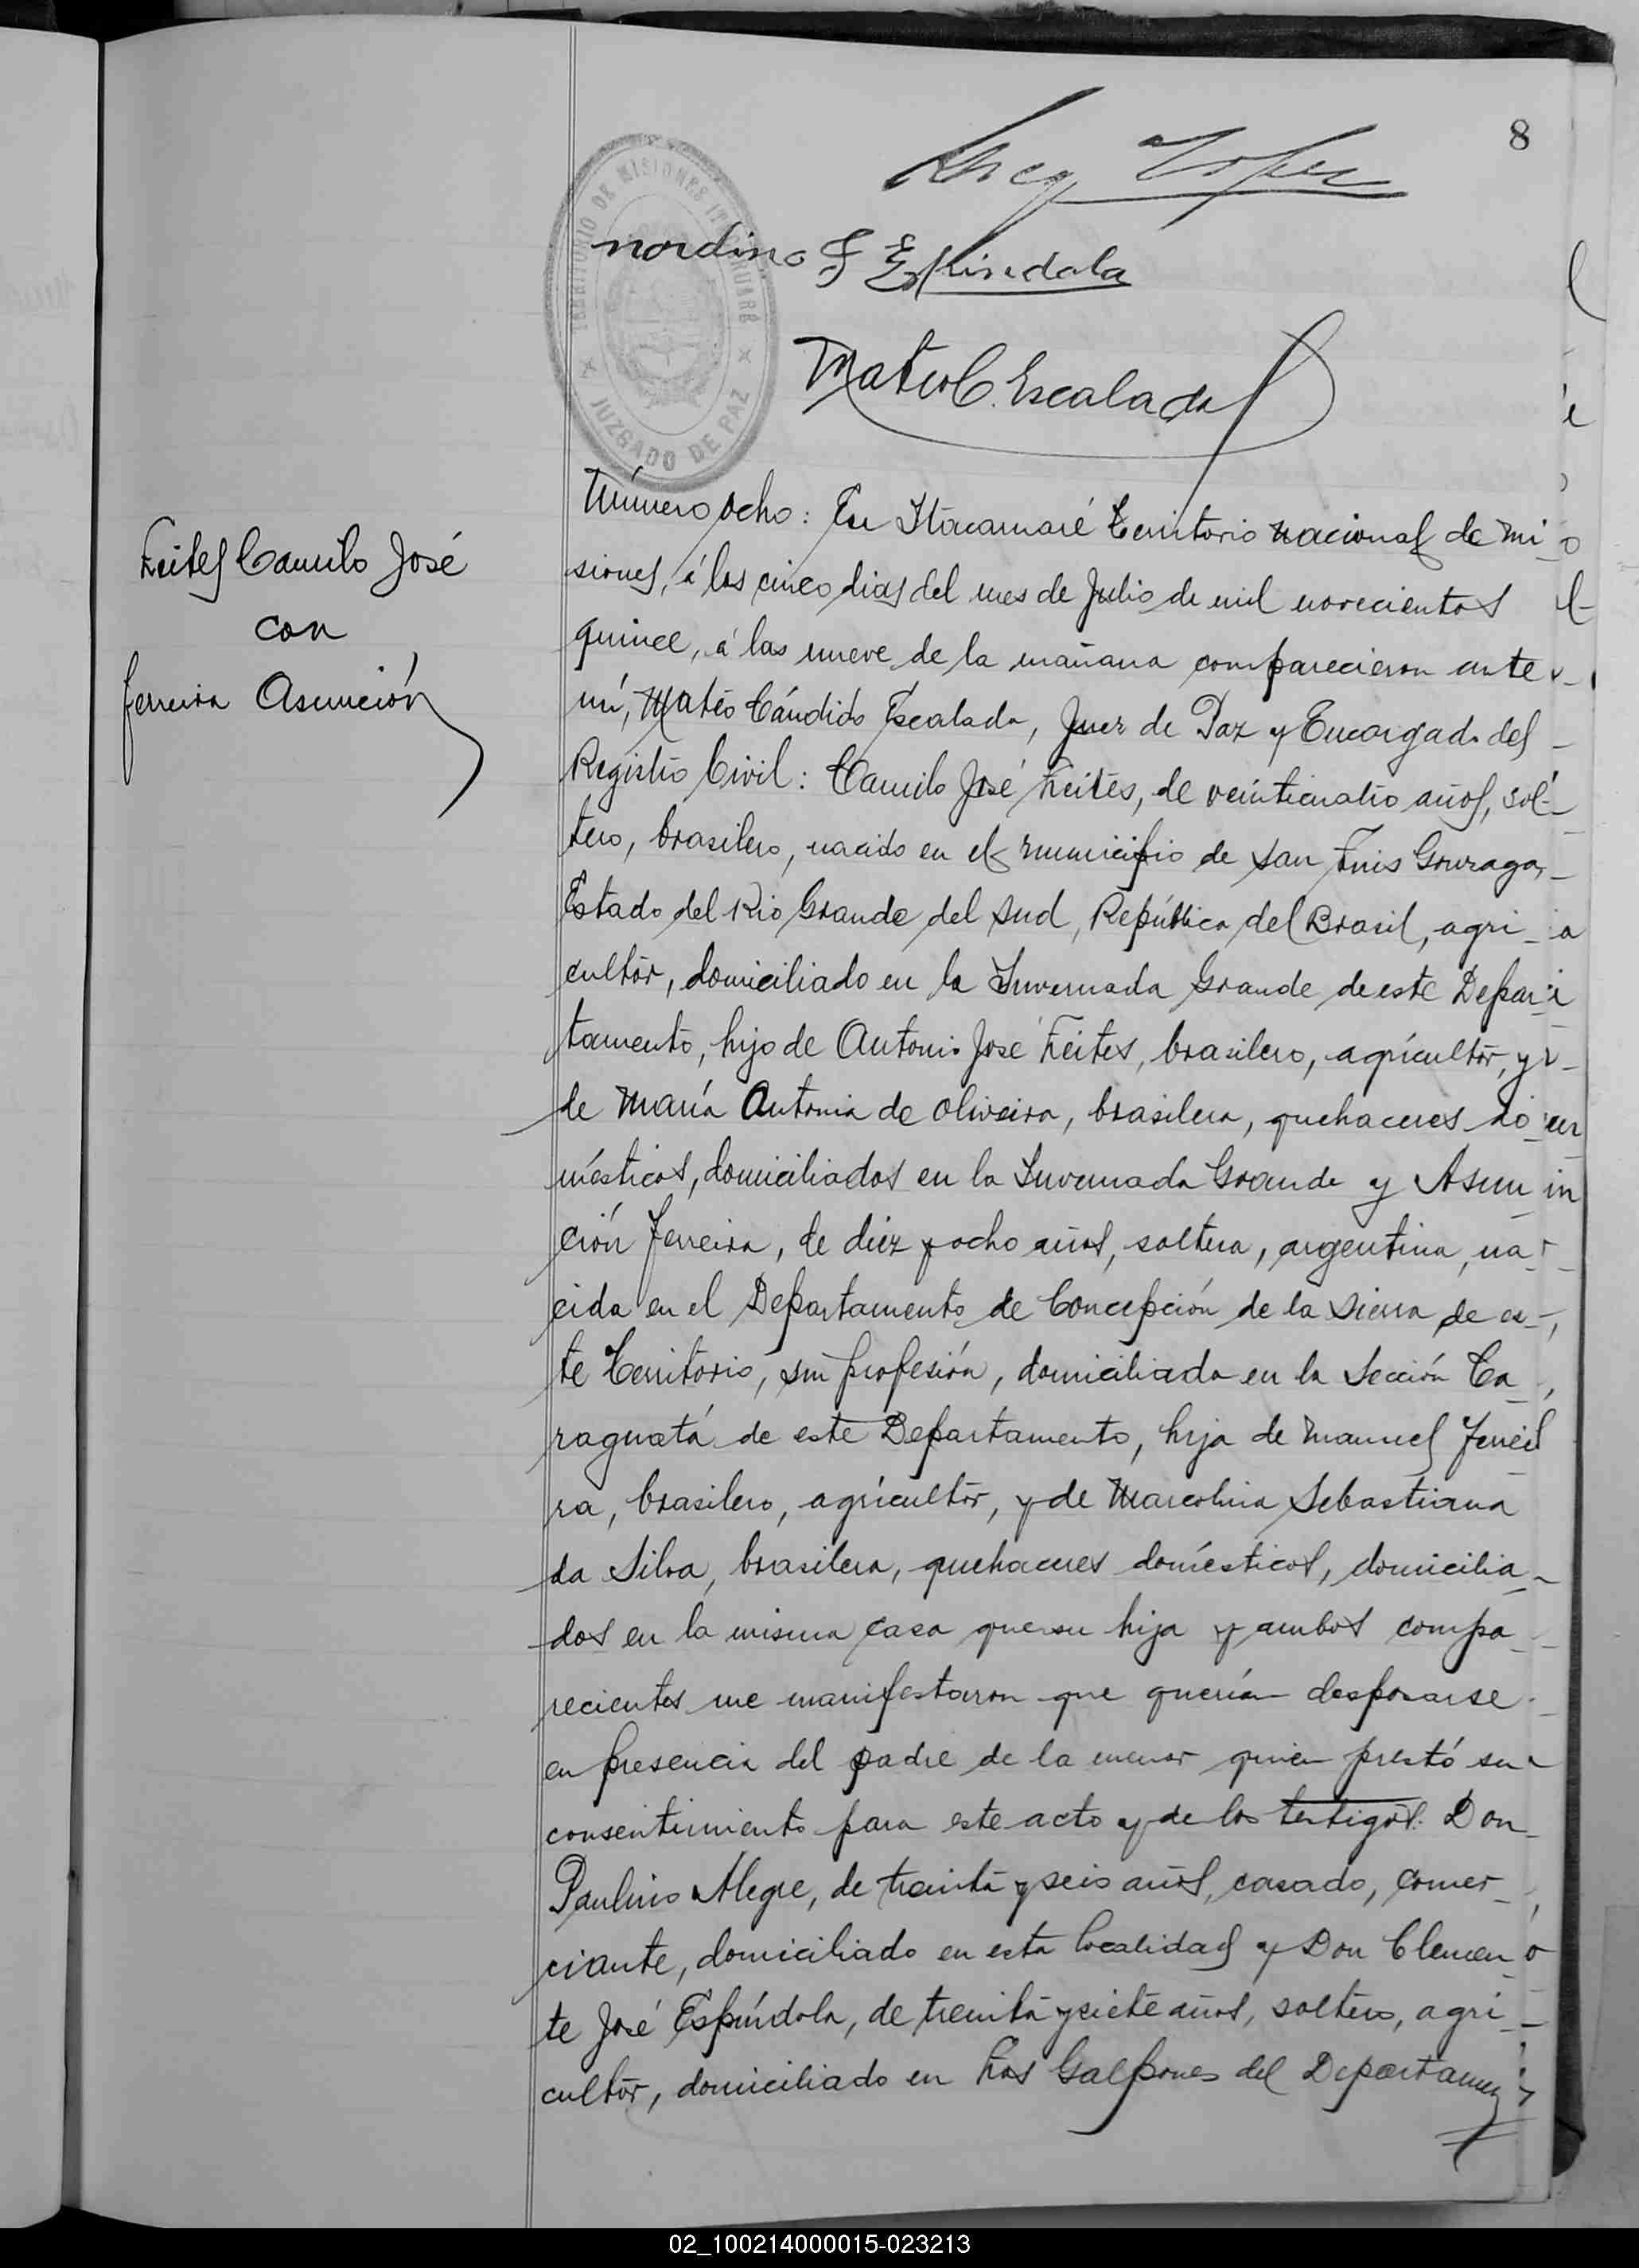 8
Lopez
nordino F Espindola
Mateo C. Escalada
TERRITORIO DE MISIONES ITACARUARÉ
JUZGADO DE PAZ
Feites Camilo José
con
Ferreira Asunción
Número ocho: En Itacaruaré Territorio nacional de Mi
siones, á los cinco dias del mes de Julio de mil novecientos
quince, á las nueve de la mañana comparecieron ante
mí, Mateo Cándido Escalada, Juez de Paz y Encargado del
Registro Civil: Camilo José Feites, de veinticuatro años, sol-
tero, brasilero, nacido en el municipio de San Luis Gonzaga,
Estado del Rio Grande del Sud, República del Brasil, agri
cultor, domiciliado en la Invernada Grande de este Depar
tamento, hijo de Antonio José Feites, brasilero, agricultor, y
de María Antonia de Oliveira, brasilera, quehaceres do
mésticos, domiciliados en la Invernada Grande y Asun
ción Ferreira, de diez y ocho años, soltera, argentina, na
cida en el Departamento de Concepción de la Sierra de es-
te Territorio, sin profesión, domiciliada en la Sección Ca
raguatá de este Departamento, hija de Manuel Ferrei
ra, brasilero, agricultor, y de Marcolina Sebastiana
da Silva, brasilera, quehaceres domésticos, domicilia
dos en la misma casa que su hija y ambos compa
recientes me manifestaron que querían desposarse
en presencia del padre de la menor quien prestó su
consentimiento para este acto y de los testigos: Don
Paulino Alegre, de treinta y seis años, casado, comer
ciante, domiciliado en esta localidad y Don Clemen
te José Espíndola, de treinta y siete años, soltero, agri
cultor, domiciliado en Los Galpones del Departamen
02_100214000015-023213